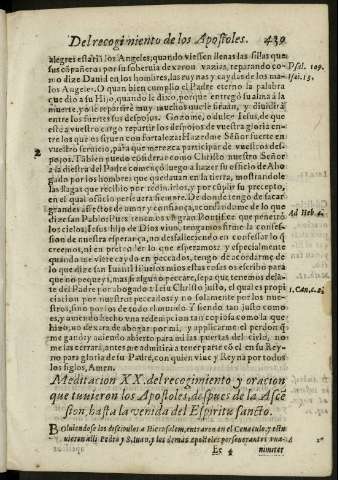 Del recogimiento de los Apostoles. 439
alegres estariã los Angeles, quando viessen llenas las sillas que
sus cõpañeros por su soberuia dexaron vazias, reparando co-
mo dize Dauid en los hombres, las ruynas y caydas de los ma-
los Angeles. O quan bien cumplio el Padre eterno la palabra
que dio a su Hijo, quando le dixo, porque entregó su alma a la
muerte, yo le repartiré muy muchos que le siruan, y diuidirá
entre los fuertes sus despojos. Gozome, o dulce Iesus, de que
esté a vuestro cargo repartir los despojos de vuestra gloria en-
tre los que os siruen con fortaleza: Hazedme Señor fuerte en
vuestro seruicio, para que merezca participar de vuestros des-
pojos. Tãbien puedo considerar como Christo nuestro Señor
a la diestra del Padre començó luego a hazer su oficio de Abo-
gado por los hombres que quedauan en la tierra, mostrandole
las llagas que recibio por redimirlos, y por cũplir su precepto,
en el qual oficio perseuera siempre. De donde tengo de sacar
grandes afectos de amor y confiança, acordandome de lo que
dize san Pablo: Pues tenemos vn gran Pontifice que penetró
los cielos, Iesus hijo de Dios viuo, tengamos firme la confes-
sion de nuestra esperança, no desfalleciendo en confessar lo q̃
creemos, ni en pretender lo que esperamos: y especialmente
quando me viere caydo en peccados, tengo de acordarme de
lo que dize san Iuan: Hijuelos mios estas cosas os escribo para
que no pequeys, mas si alguno peccáre, sepa que tenemos dela-
te del Padre por abogado a Iesu Christo justo, el qual es propi
ciacion por nuestros peccados: y no solamente por los nue-
stros, sino por los de todo el mundo. Y siendo tan justo como
es, y auiendo hecho vna redempcion tan copiosa como la que
hizo, no dexará de abogar por mi, y applicarme el perdon q̃
me ganó: y auiendo abierto para mi las puertas del cielo, no
me las cerrará, antes me admitirá a tener parte cõ el en su Rey-
no para gloria de su Padre, con quien viue y Reyna por todos
los siglos, Amen.
Psal. 109.
Isai. 53.
2
Ad Heb. 4.
1. Ioan. 2.
Meditacion XX. del recogimiento y oracion
que tuuieron los Apostoles, despues de la Ascẽ
sion, hasta la venida del Espiritu sancto.
Boluiendose los discipulos a Hierusalem, entraron en el Cenaculo, y estu
uieron alli Pedro y S. Iuan, y los demas apostoles perseuerantes vna-
Ee 4 nimiter